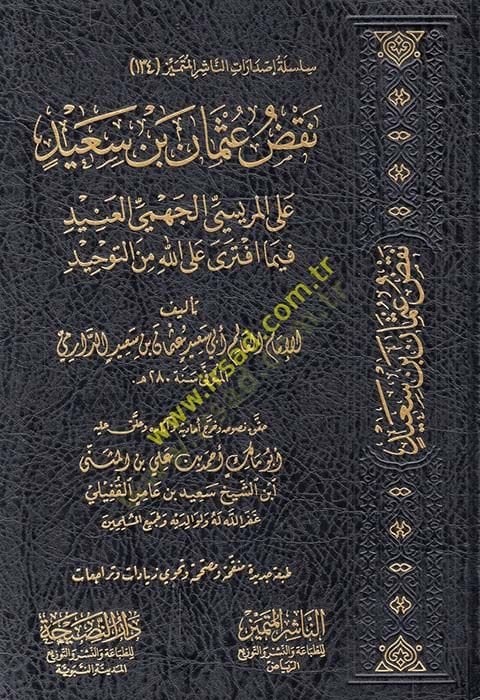 سلسلة إصدارات الناشر المتميز (١٣٤)
نقض عثمان بن سعيد
على المريسي الجهمي العنيد
فيما افترى على الله من التوحيد
تأليف
الإمام العالم أبي سعيد عثمان بن سعيد الدارمي
المتوفى سنة ٢٨٠ هـ.
حقق نصوصه وخرج أحاديثه وآثاره وعلق عليه
أبو مالك أحمد بن علي بن المثنى
ابن الشيخ سعيد بن عامر القفيلي
غفر الله له ولوالديه ولجميع المسلمين
طبعة جديدة منقحة ومصححة وتحوي زيادات وتراجعات
الناشر المتميز
للطباعة والنشر والتوزيع
الرياض
دار النصيحة
للطباعة والنشر والتوزيع
المدينة النبوية
نقض عثمان بن سعيد
www.irsad.com.tr